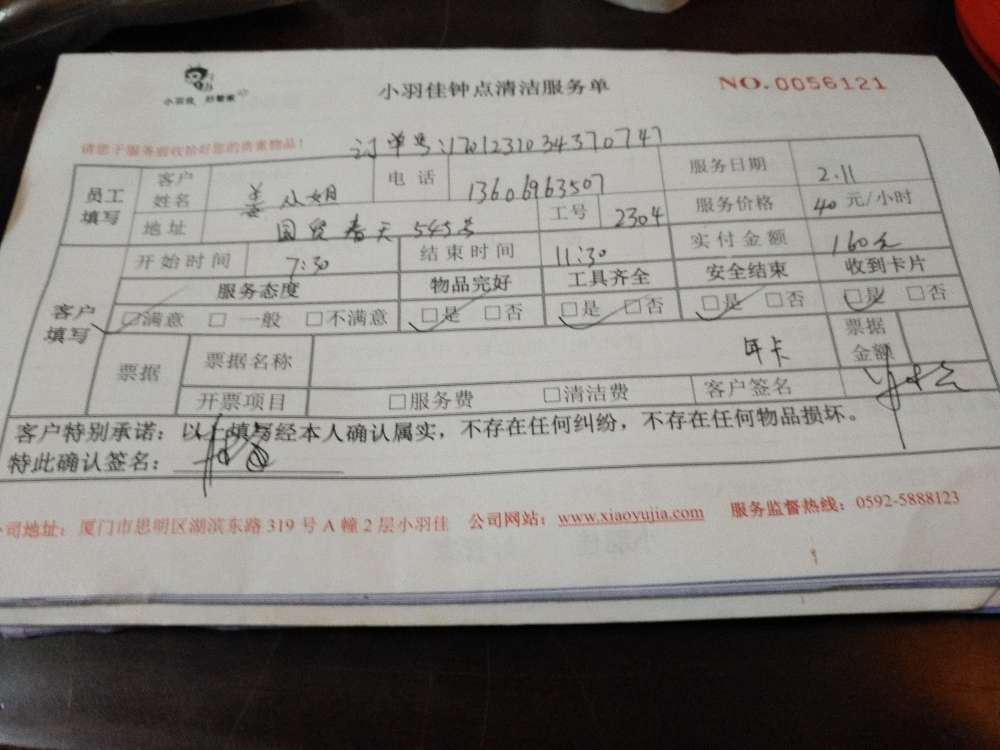 小羽佳 好管家
小羽佳钟点清洁服务单
NO.0056121
请您于服务前收拾好您的贵重物品!
订单号:1701231034370747
员工填写 客户姓名 小姐 电话 13606963507 服务日期 2.11
地址 国贸春天545号 工号 2304 服务价格 40元/小时
开始时间 7:30 结束时间 11:30 实付金额 160元
客户填写 服务态度 物品完好 工具齐全 安全结束 收到卡片
□满意 □一般 □不满意 □是 □否 □是 □否 □是 □否 □是 □否
票据 票据名称 年卡 票据金额
开票项目 □服务费 □清洁费 客户签名
客户特别承诺:以上填写经本人确认属实,不存在任何纠纷,不存在任何物品损坏。
特此确认签名:
公司地址:厦门市思明区湖滨东路319号A幢2层小羽佳 公司网站:www.xiaoyujia.com 服务监督热线:0592-5888123